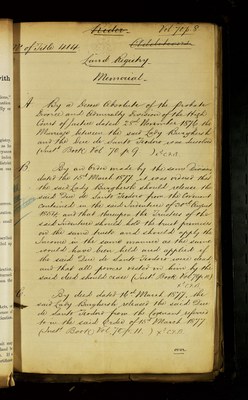 Vol 70 p 8
No of Title 414
Land Registry
Memorial.
A By a Decree Absolute of the Probate
Divorce and Admiralty Division of the High
Court of Justice dated 28th November 1876 the
Marriage between the said Lady Burghersh
and the Duc de Santo Teodoro was dissolved
(Inst. Book Vol. 70 p. 9
B By an order made by the same Division
dated the 15th March 1877, it was ordered that
the said Lady Burghersh should release the
said Duc de Santo Teodoro from the Covenant
contained in the said Indenture of August
and that thereupon the Trustees of the
said Indenture should hold the trust premises
on the same trusts and should apply the
Income in the same manner as the same
would have been held and applied if
the said Duc de Santo Teodoro were dead
and that all powers vested in him by the
said deed should cease (Inst. Book Vol 70 p. 10)
C. By deed dated 16th March 1877, the
said Lady Burghersh released the said Duc
de Santo Teodoro from the Covenant referred
to in the said Order of 15th March 1877
(Inst. Book Vol. 70 p. 11.)